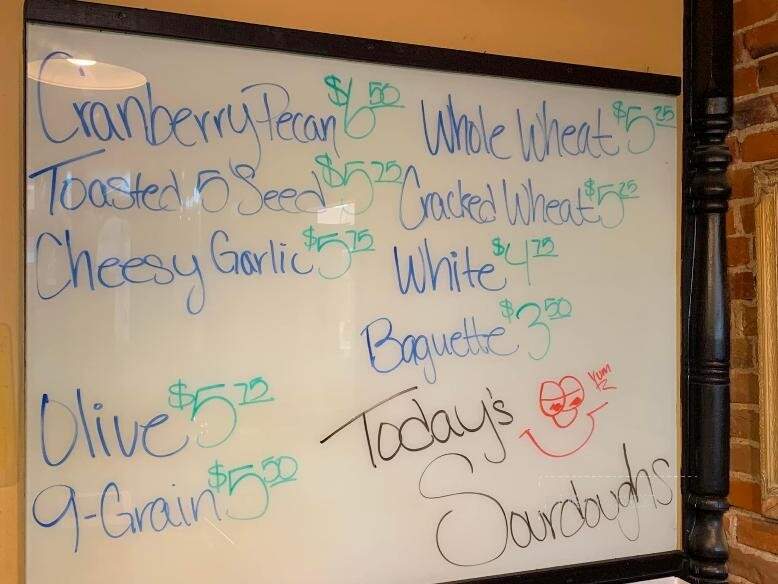 Cranberry Pecan $6.50
Toasted 5 Seed $5.75
Cheesy Garlic $5.75
Olive $5.75
9-Grain $5.50
Whole Wheat $5.25
Cracked Wheat $5.25
White $4.75
Baguette $3.50
Today's
Sourdoughs
Yum